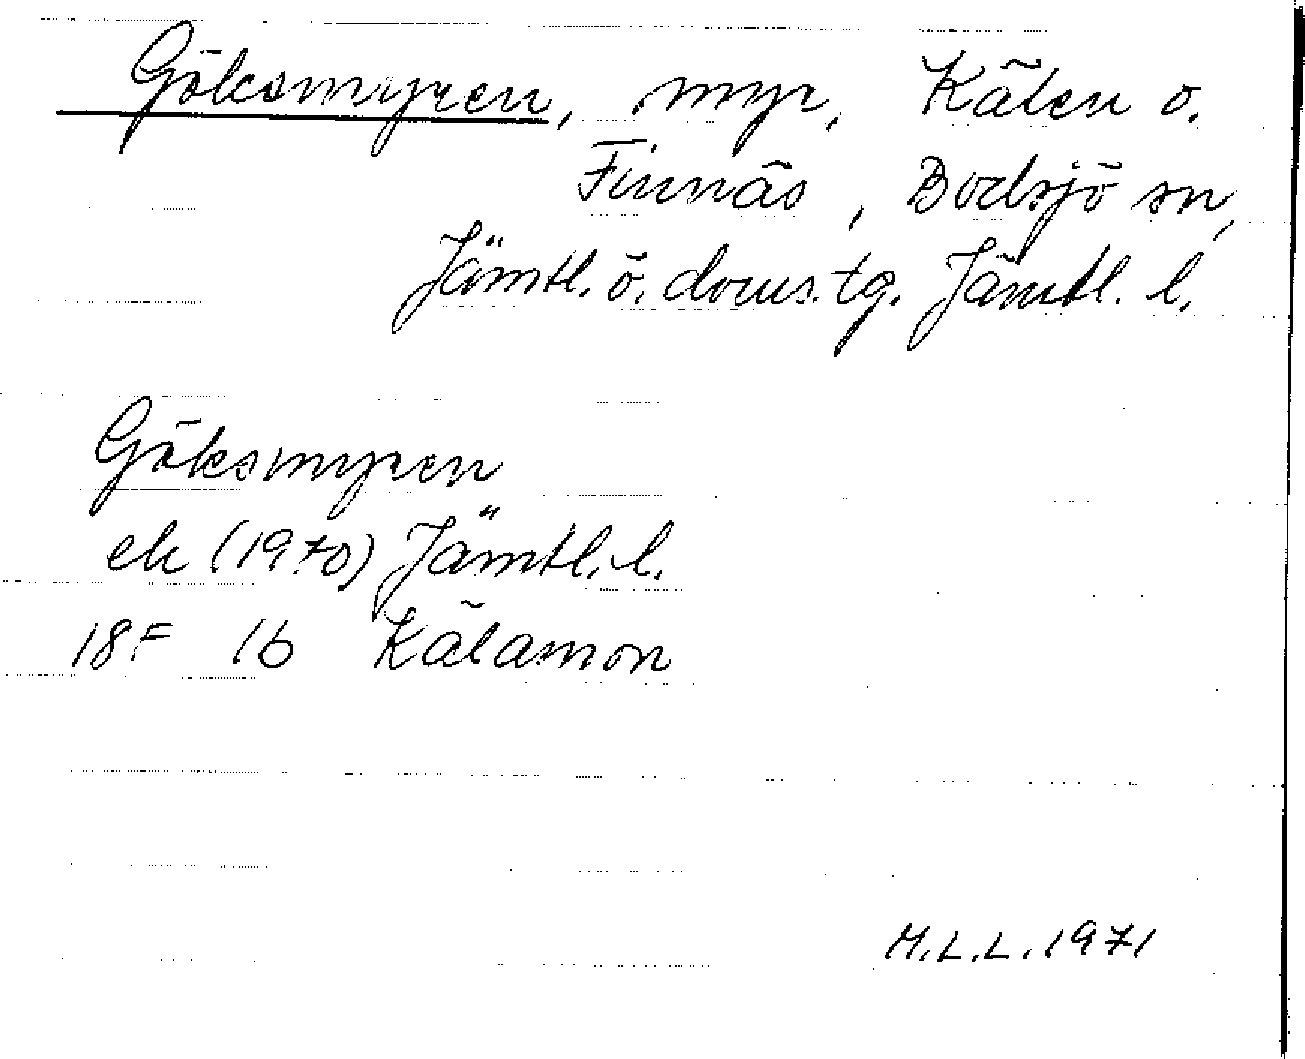 Göksmyren, myr, Kälen o.
Finnäs, Bodsjö sn,
Jämtl. ö. doms. tg. Jämtl. l.
Göksmyren
ek (1970) Jämtl. l.
18F 1b Kälamon
M.L.L. 1971